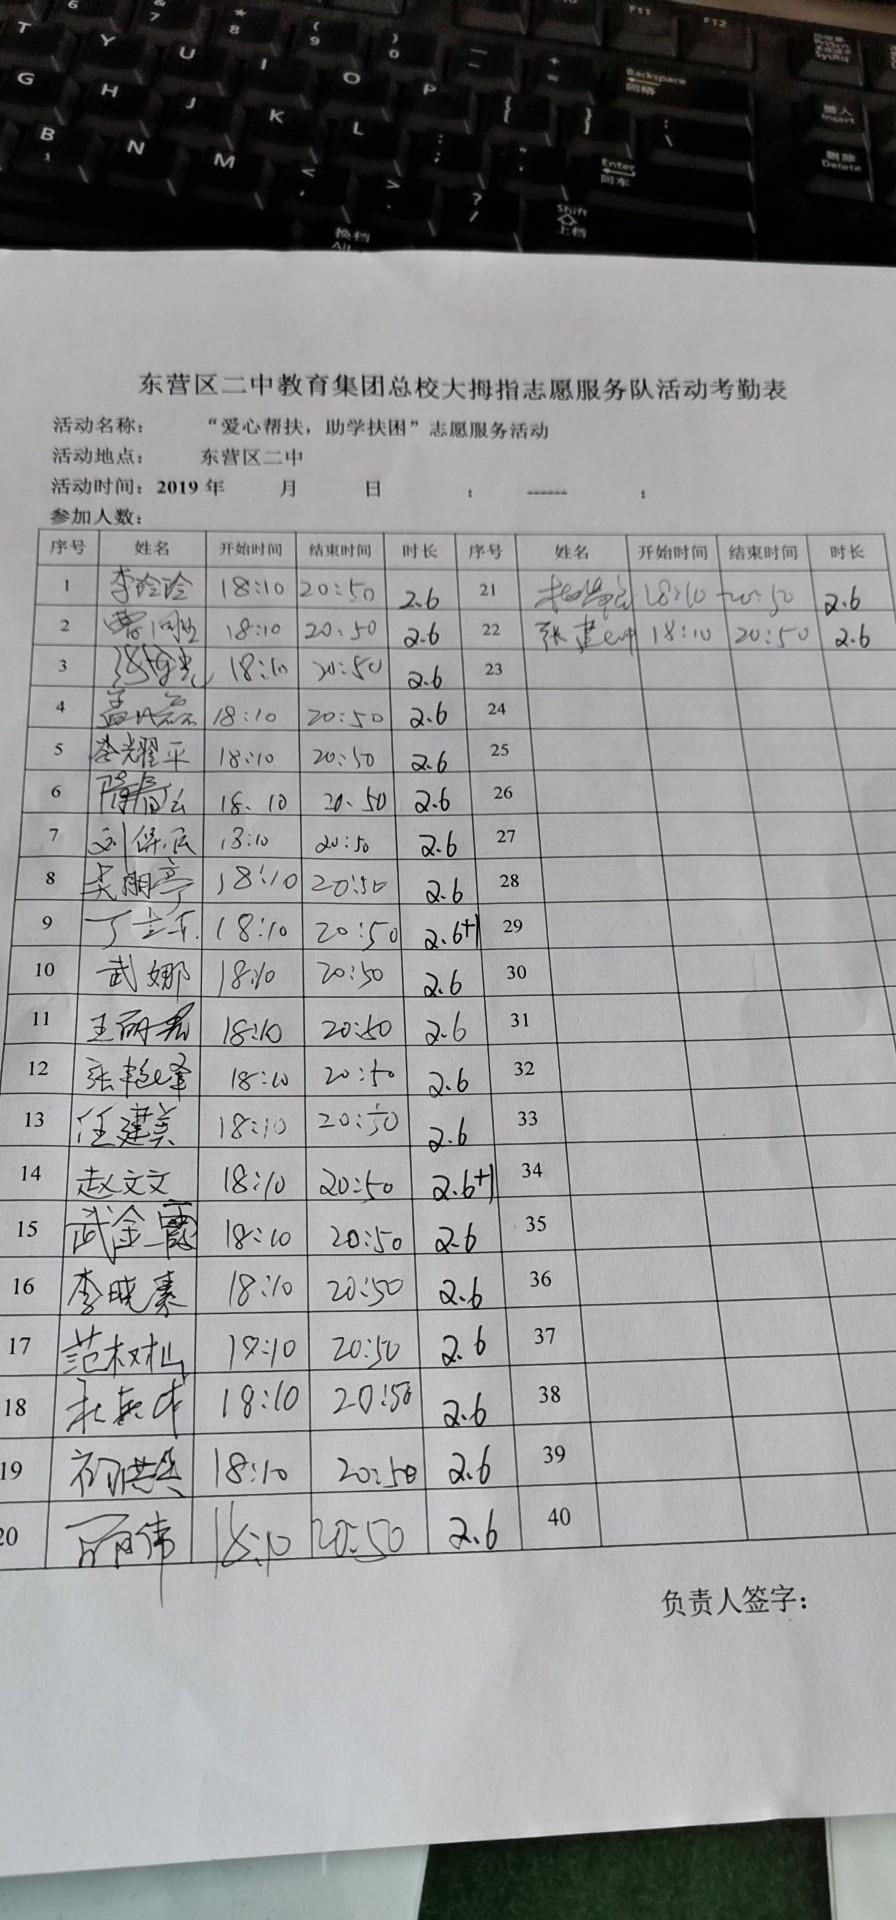 T Y U I O P
G H J K L
B N M
F11 F12
Backspace
回格
Enter
回车
Shift
上档
换档
Alt
插入
Insert
删除
Delete
东营区二中教育集团总校大拇指志愿服务队活动考勤表
活动名称： “爱心帮扶，助学扶困”志愿服务活动
活动地点： 东营区二中
活动时间：2019年 月 日 ： ------ ：
参加人数：
序号 姓名 开始时间 结束时间 时长 序号 姓名 开始时间 结束时间 时长
1 李玲玲 18:10 20:50 2.6 21 18:10 20:50 2.6
2 18:10 20:50 2.6 22 张建 18:10 20:50 2.6
3 18:10 20:50 2.6 23
4 孟 18:10 20:50 2.6 24
5 李耀平 18:10 20:50 2.6 25
6 18.10 20.50 2.6 26
7 刘保民 18:10 20:50 2.6 27
8 吴丽亭 18:10 20:50 2.6 28
9 丁 18:10 20:50 2.6+1 29
10 武娜 18:10 20:50 2.6 30
11 王丽君 18:10 20:50 2.6 31
12 张艳峰 18:10 20:50 2.6 32
13 任建美 18:10 20:50 2.6 33
14 赵文文 18:10 20:50 2.6+1 34
15 武金霞 18:10 20:50 2.6 35
16 李晓素 18:10 20:50 2.6 36
17 范树山 18:10 20:50 2.6 37
18 杜 18:10 20:50 2.6 38
19 18:10 20:50 2.6 39
20 伟 18:10 20:50 2.6 40
负责人签字：